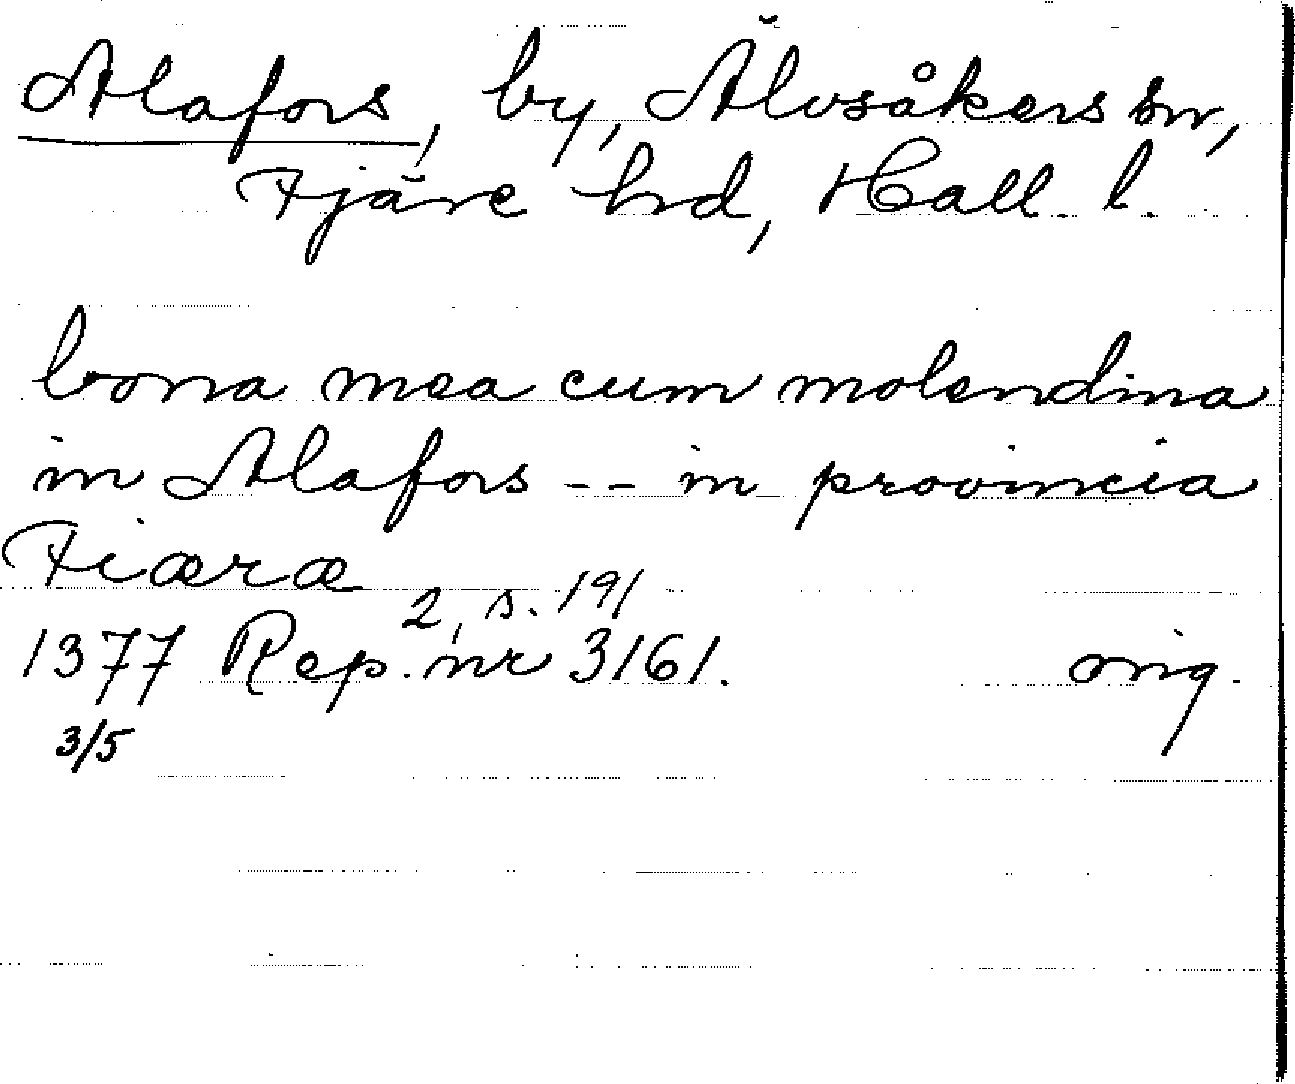 Alafors, by, Älvsåkers sn,
Fjäre hd, Hall. l.
bona mea cum molendina
in Alafors -- in provincia
Fiæræ
2, s. 191
1377 Rep. nr 3161. orig.
3/5